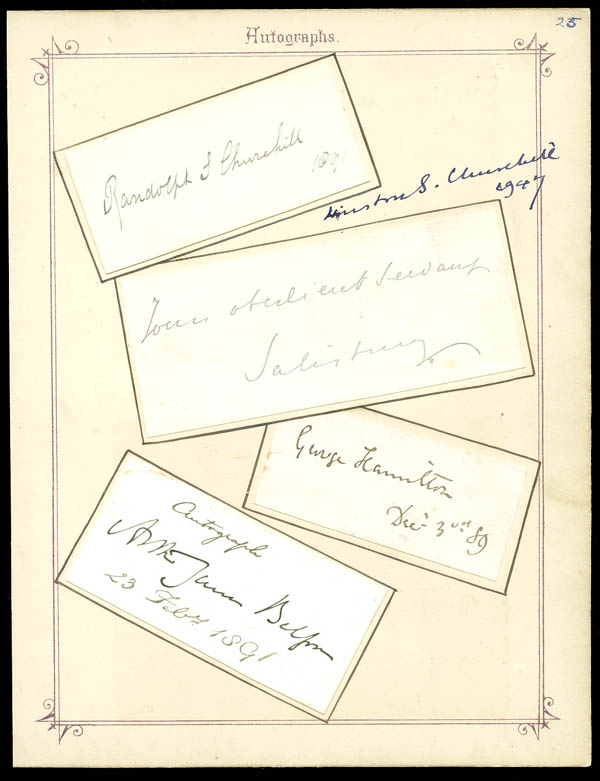 25
Autographs.
Randolph S Churchill
189
Winston S. Churchill
1947
Your obedient servant
Salisbury
George Hamilton
Decr 3rd 89
Autograph
Arthur James Balfour
23 Feby 1891